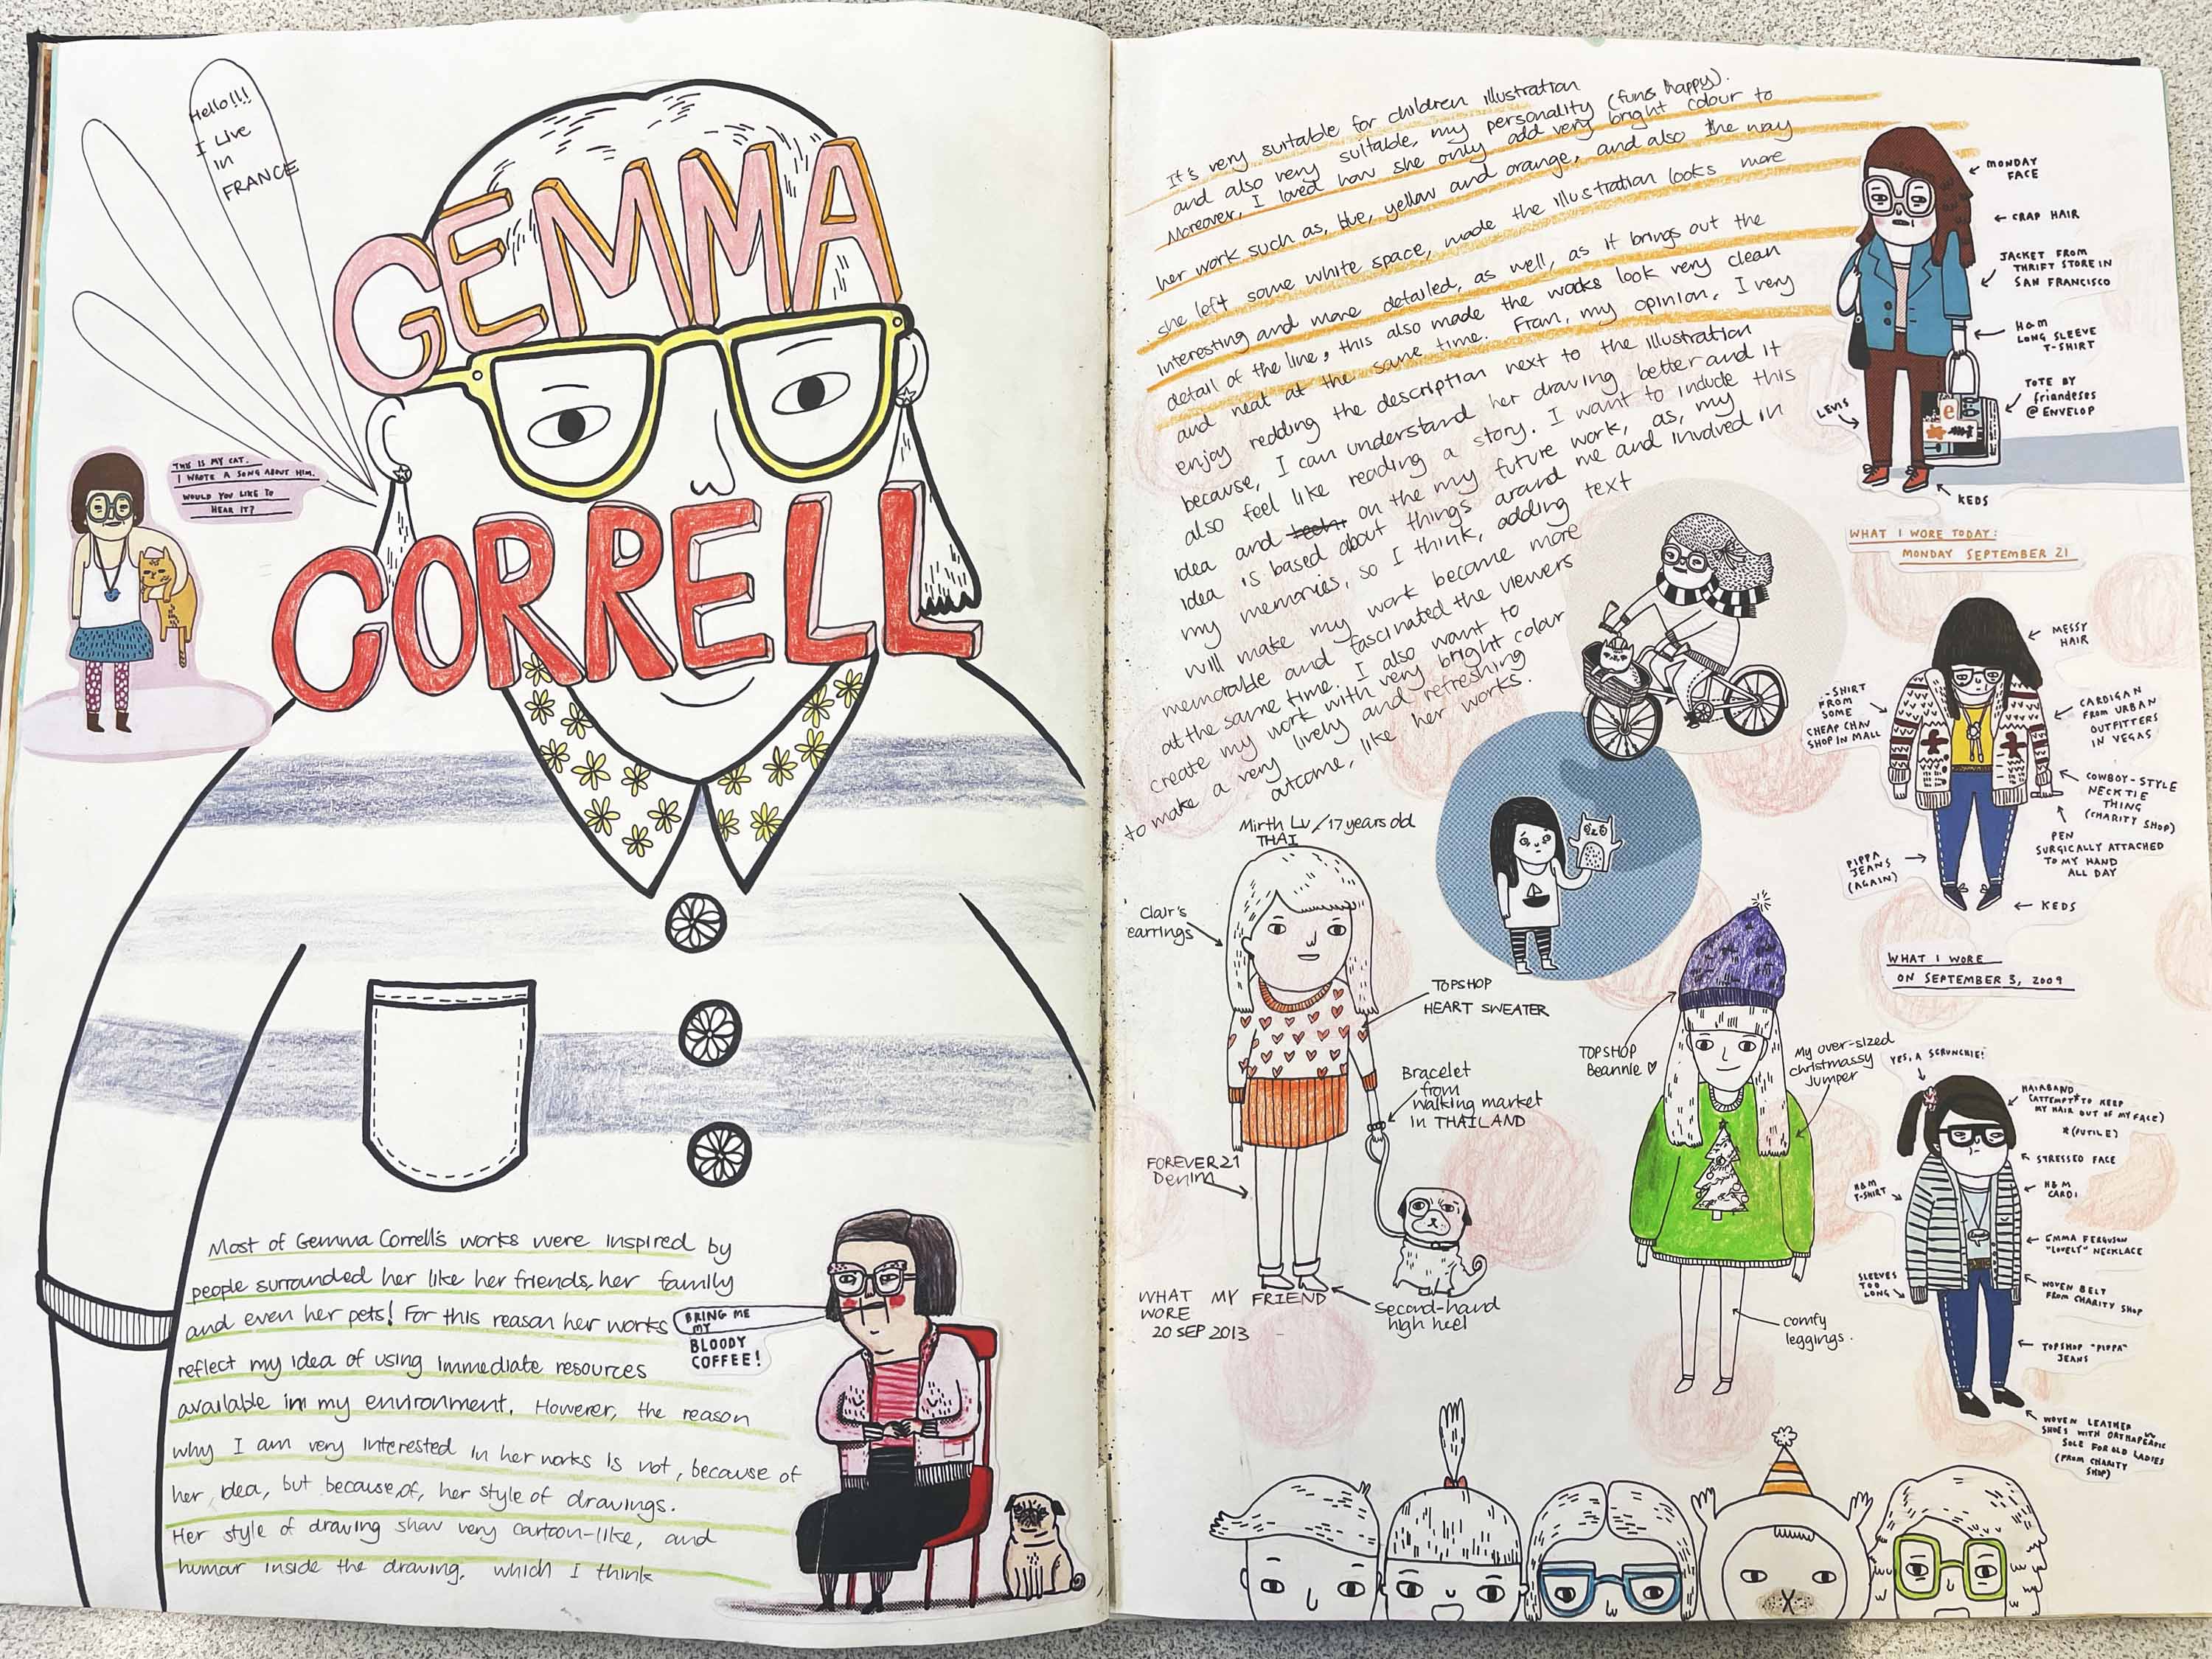 Hello!!!
I Live
in
FRANCE
GEMMA
CORRELL
THIS IS MY CAT.
I WROTE A SONG ABOUT HIM.
WOULD YOU LIKE TO
HEAR IT?
Most of Gemma Correll's works were inspired by
people surrounded her like her friends, her family
and even her pets! For this reason her works
reflect my idea of using immediate resources
available in my environment. However, the reason
why I am very interested in her works is not, because of
her, idea, but because, of, her style of drawings.
Her style of drawing show very cartoon-like, and
humour inside the drawing, which I think
BRING ME
MY
BLOODY
COFFEE!
It's very suitable for children illustration
and also very suitable, my personality (fun & happy).
Moreover, I loved how she only add very bright colour to
her work such as, blue, yellow and orange, and also the way
she left some white space, made the illustration looks more
interesting and more detailed, as well, as it brings out the
detail of the line, this also made the works look very clean
and neat at the same time. From, my opinion, I very
enjoy redding the description next to the illustration
because, I can understand her drawing better and it
also feel like reading a story. I want to include this
idea and on the my future work, as, my
idea is based about things around me and involved in
my memories, so I think, adding text
will make my work become more
memorable and fascinated the viewers
at the same time. I also want to
create my work with very bright colour
to make a very lively and refreshing
outcome, like her works.
MONDAY
FACE
CRAP HAIR
JACKET FROM
THRIFT STORE IN
SAN FRANCISCO
H&M
LONG SLEEVE
T-SHIRT
TOTE BY
friandeses
@ ENVELOP
LEVIS
e
KEDS
WHAT I WORE TODAY:
MONDAY SEPTEMBER 21
MESSY
HAIR
-SHIRT
FROM
SOME
CHEAP CHAV
SHOP IN MALL
CARDIGAN
FROM URBAN
OUTFITTERS
IN VEGAS
COWBOY-STYLE
NECKTIE
THING
(CHARITY SHOP)
PEN
SURGICALLY ATTACHED
TO MY HAND
ALL DAY
PIPPA
JEANS
(AGAIN)
KEDS
WHAT I WORE
ON SEPTEMBER 3, 2009
Mirth Lv / 17 years old
THAI
Clair's
earrings
TOPSHOP
HEART SWEATER
Bracelet
from
walking market
in THAILAND
FOREVER 21
Denim
WHAT MY FRIEND
WORE
20 SEP 2013
Second-hand
high heel
TOPSHOP
Beannie ♡
My over-sized
christmassy
Jumper
comfy
leggings.
YES, A SCRUNCHIE!
HAIRBAND
(ATTEMPT* TO KEEP
MY HAIR OUT OF MY FACE)
*(FUTILE)
STRESSED FACE
H&M
T-SHIRT
H&M
CARDI
EMMA FERGUSON
"LOVELY" NECKLACE
SLEEVES
TOO
LONG
WOVEN BELT
FROM CHARITY SHOP
TOPSHOP "PIPPA"
JEANS
WOVEN LEATHER
SHOES WITH ORTHAPEADIC
SOLE FOR OLD LADIES
(FROM CHARITY
SHOP)